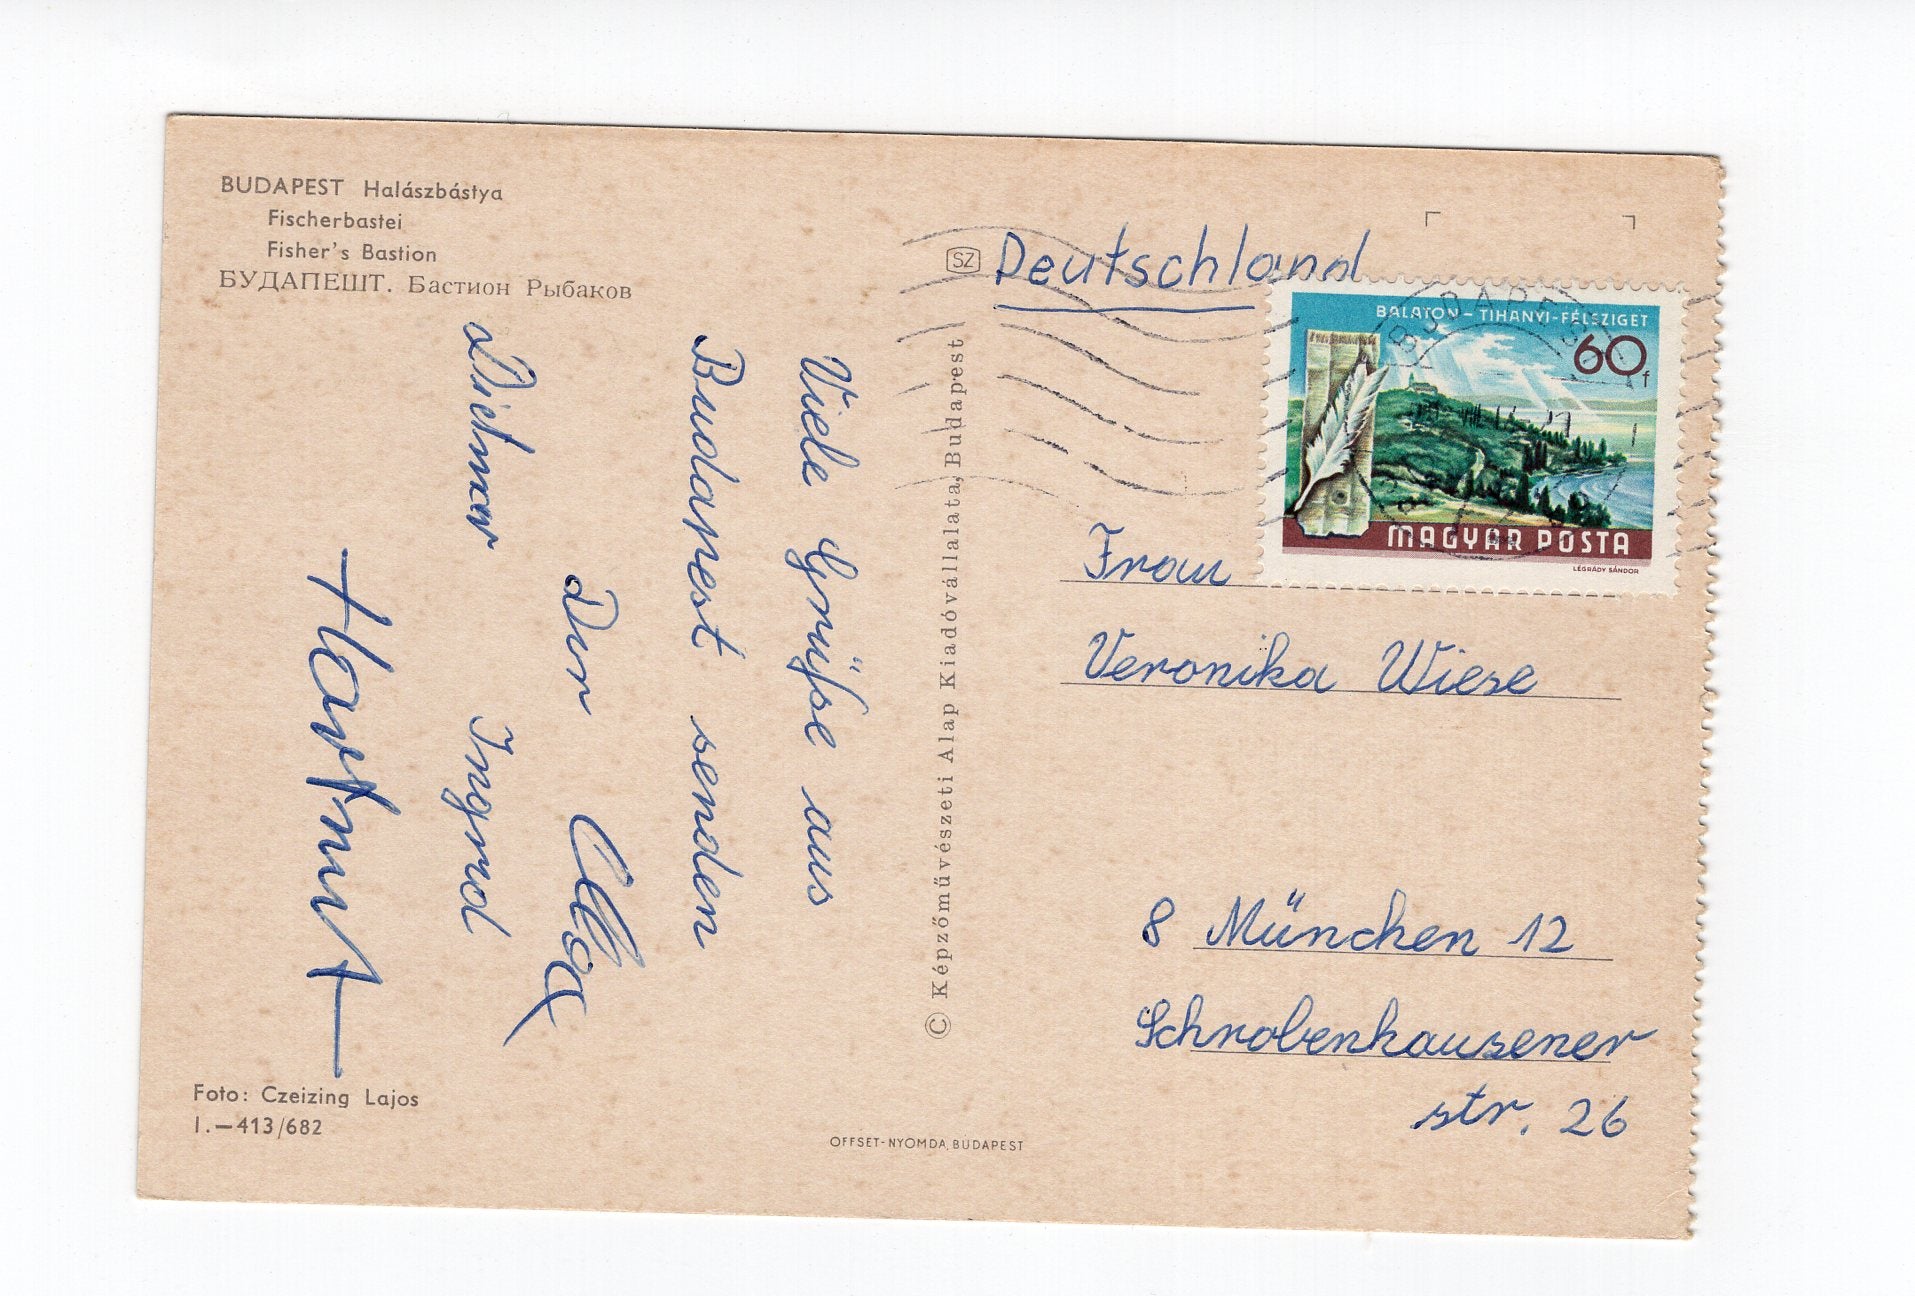 BUDAPEST Halászbástya
Fischerbastei
Fisher's Bastion
БУДАПЕШТ. Бастион Рыбаков
Viele Grüße aus
Budapest senden
Dietmar Ingrid
Hartmut
Foto: Czeizing Lajos
I.—413/682
© Képzőművészeti Alap Kiadóvállalata, Budapest
OFFSET-NYOMDA, BUDAPEST
SZ
Deutschland
BUDAPEST
BALATON – TIHANYI-FÉLSZIGET
60f
MAGYAR POSTA
LÉGRÁDY SÁNDOR
Frau
Veronika Wiese
8 München 12
Schrobenhausener
str. 26